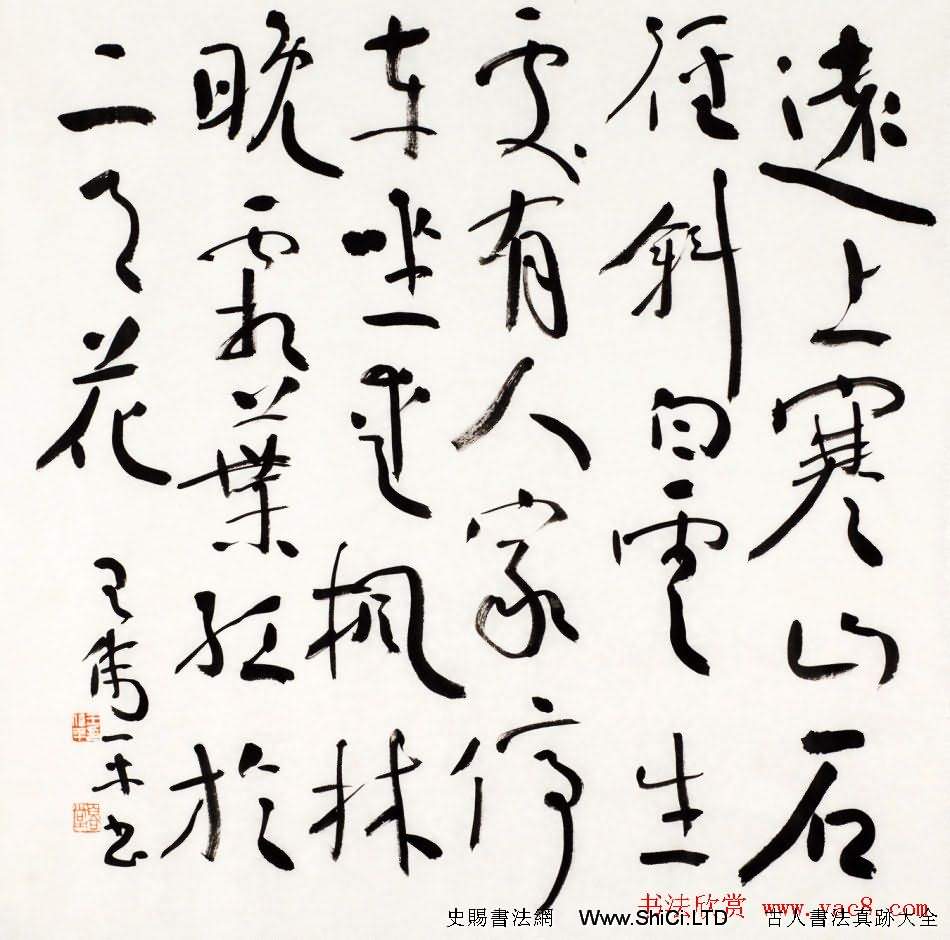 遠上寒山石
徑斜白雲生
處有人家停
車坐愛楓林
晚霜葉紅於
二月花
书法欣赏 www.yac8.com
史賜書法網 Www.ShiCi.LTD 古人書法真跡大全